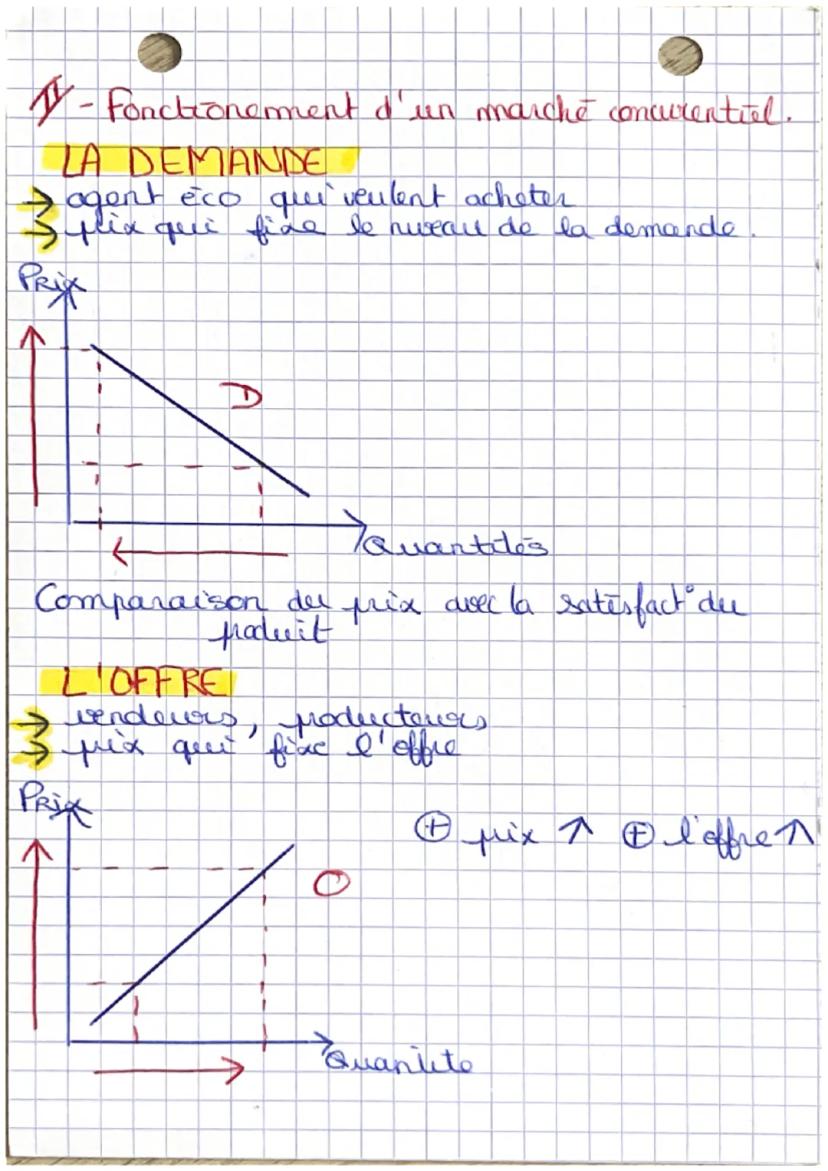 II - Fonctionement d'un marché concurentiel.
LA DEMANDE
→ agent éco qui veulent acheter
→ prix qui fixe le niveau de la demande.
Prix
D
Quantités
Comparaison du prix avec la satisfact° du
produit
L'OFFRE
→ vendeurs, producteurs
→ prix qui fixe l'offre
Prix
⊕ prix ↑ ⊕ l'offre ↑
O
Quantité